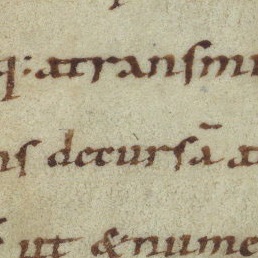 q: atransmi
ns decursā a
ut &nume